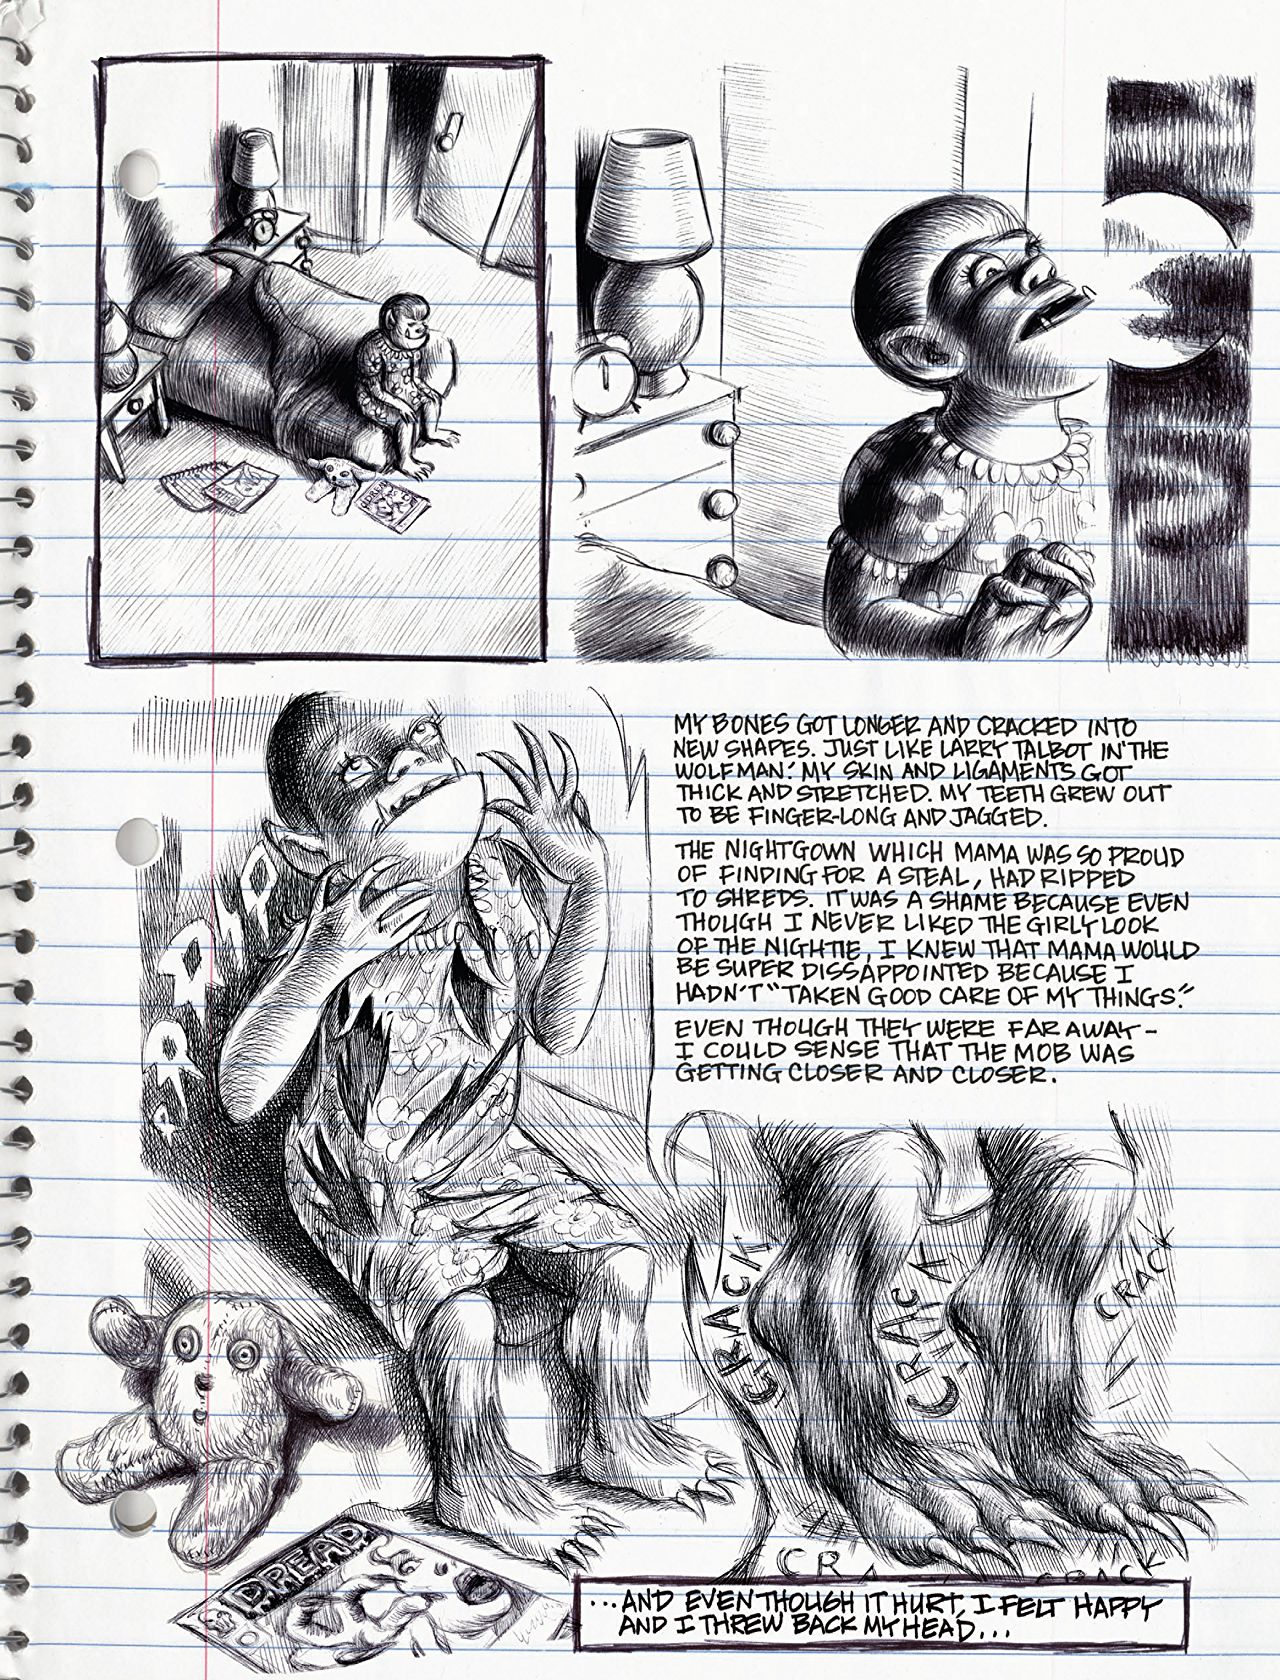 MY BONES GOT LONGER AND CRACKED INTO
NEW SHAPES. JUST LIKE LARRY TALBOT IN 'THE
WOLFMAN.' MY SKIN AND LIGAMENTS GOT
THICK AND STRETCHED. MY TEETH GREW OUT
TO BE FINGER-LONG AND JAGGED.
THE NIGHTGOWN WHICH MAMA WAS SO PROUD
OF FINDING FOR A STEAL, HAD RIPPED
TO SHREDS. IT WAS A SHAME BECAUSE EVEN
THOUGH I NEVER LIKED THE GIRLY LOOK
OF THE NIGHTIE, I KNEW THAT MAMA WOULD
BE SUPER DISSAPPOINTED BECAUSE I
HADN'T "TAKEN GOOD CARE OF MY THINGS."
EVEN THOUGH THEY WERE FAR AWAY-
I COULD SENSE THAT THE MOB WAS
GETTING CLOSER AND CLOSER.
RIP
CRACK
CRACK
CRACK
DREAD
...AND EVEN THOUGH IT HURT, I FELT HAPPY
AND I THREW BACK MY HEAD...